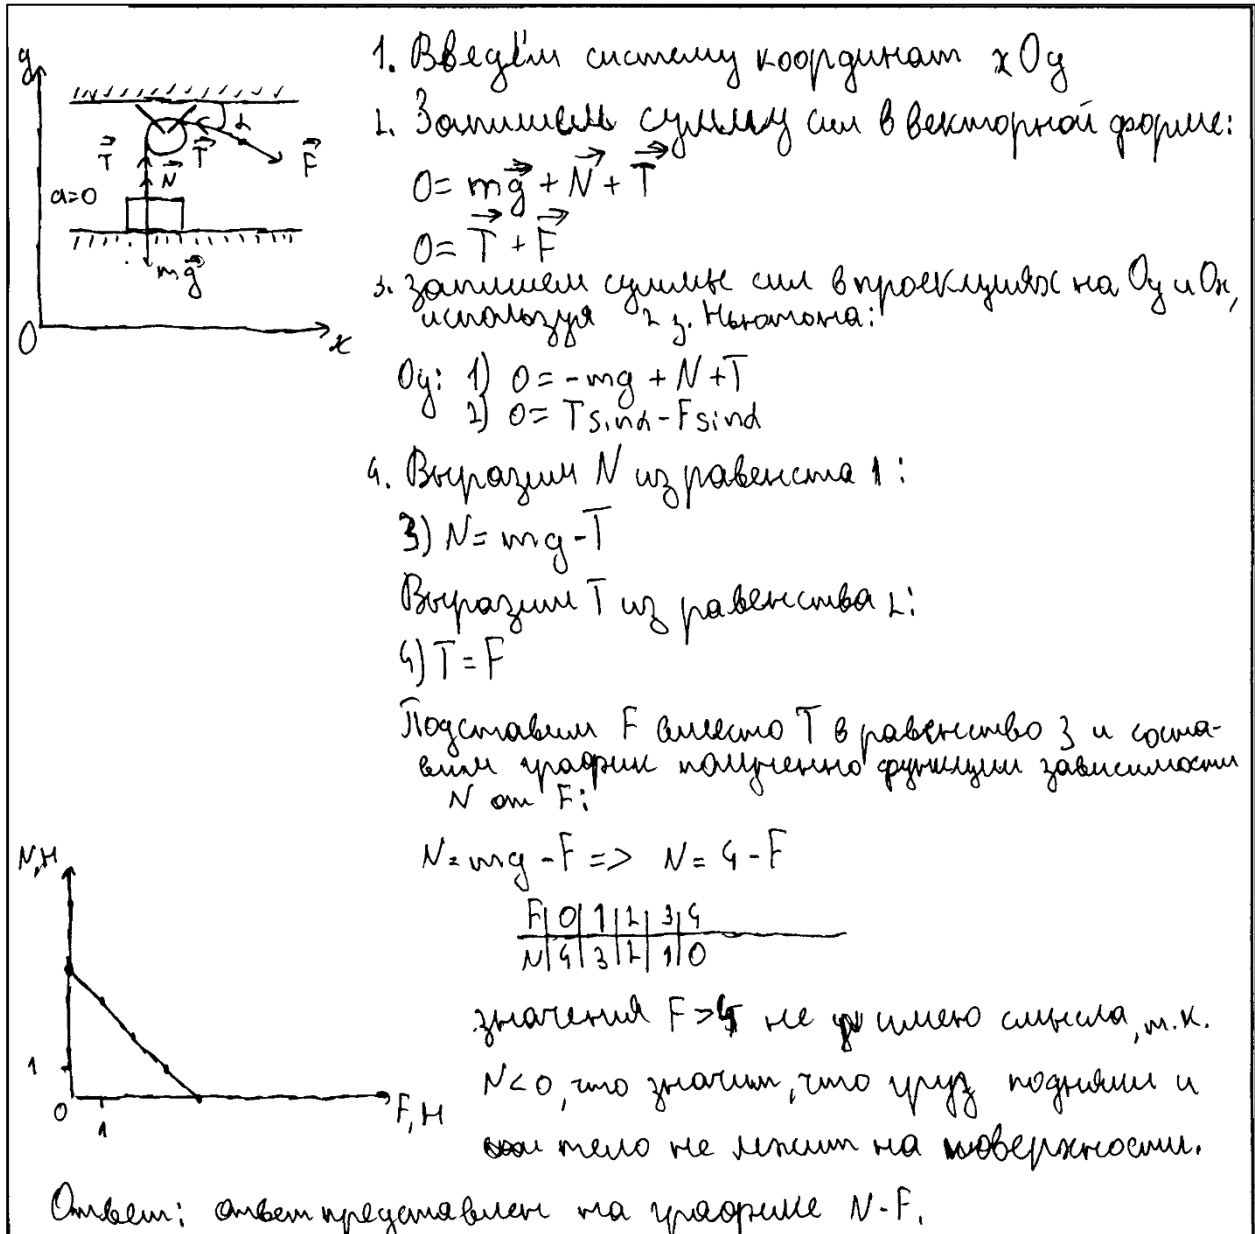 y
α
T⃗
T⃗
F⃗
N⃗
a=0
mg⃗
0
x
1. Введём систему координат xOy
2. Запишем сумму сил в векторной форме:
0 = mg⃗ + N⃗ + T⃗
0 = T⃗ + F⃗
3. Запишем суммы сил в проекциях на Oy и Ox,
используя 2 з. Ньютона:
Oy: 1) 0 = -mg + N + T
2) 0 = T sinα - F sinα
4. Выразим N из равенста 1:
3) N = mg - T
Выразим T из равенства 2:
4) T = F
Подставим F вместо T в равенство 3 и соста-
вим график полученно функции зависимости
N от F:
N = mg - F => N = 4 - F
F|0|1|2|3|4
N|4|3|2|1|0
N,Н
1
0
1
F,Н
значения F>4 не имею смысла, т.к.
N<0, что значит, что груз подняли и
тело не лежит на поверхности.
Ответ: ответ представлен на графике N-F.